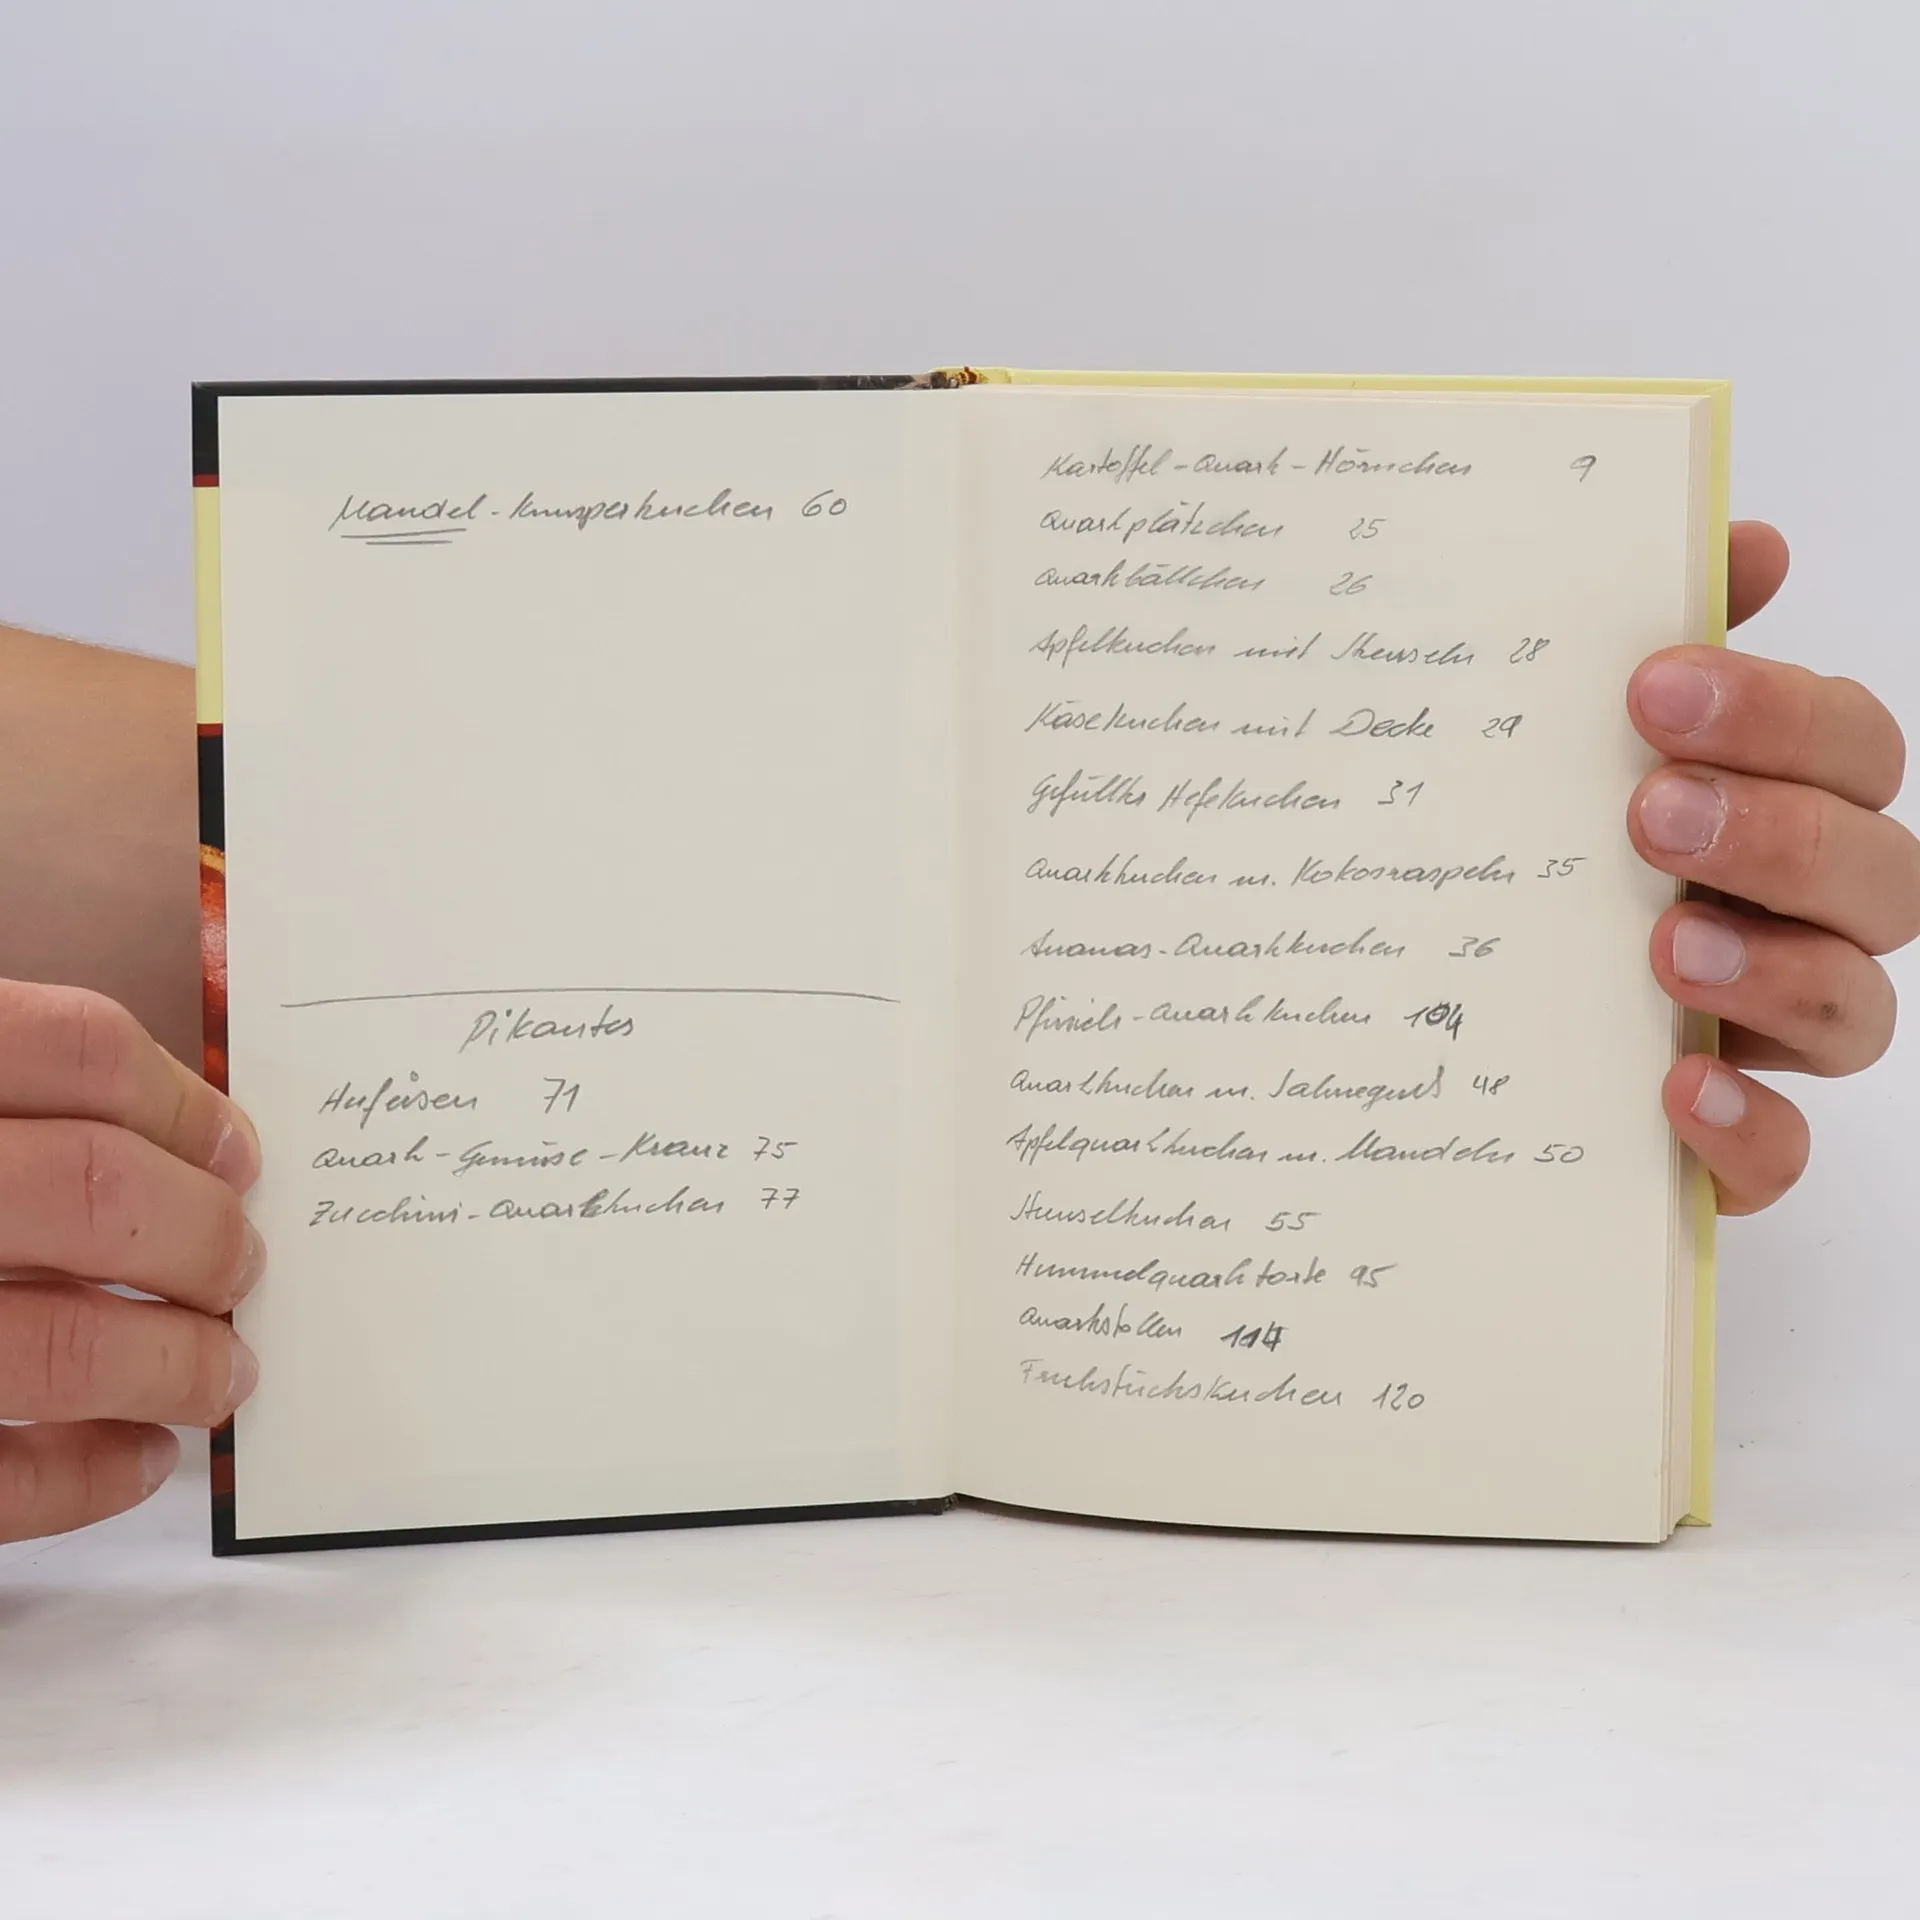 Mandel-Knusperkuchen 60
Pikantes
Hufeisen 71
Quark-Gemüse-Kranz 75
Zucchini-Quarkkuchen 77
Kartoffel-Quark-Hörnchen 9
Quarkplätzchen 25
Quarkbällchen 26
Apfelkuchen mit Streuseln 28
Käsekuchen mit Decke 29
Gefüllter Hefekuchen 31
Quarkkuchen m. Kokosraspeln 35
Ananas-Quarkkuchen 36
Pfirsich-Quarkkuchen 104
Quarkkuchen m. Sahneguß 48
Apfelquarkkuchen m. Mandeln 50
Streuselkuchen 55
Himmelquarktorte 95
Quarkstollen 114
Frühstückskuchen 120